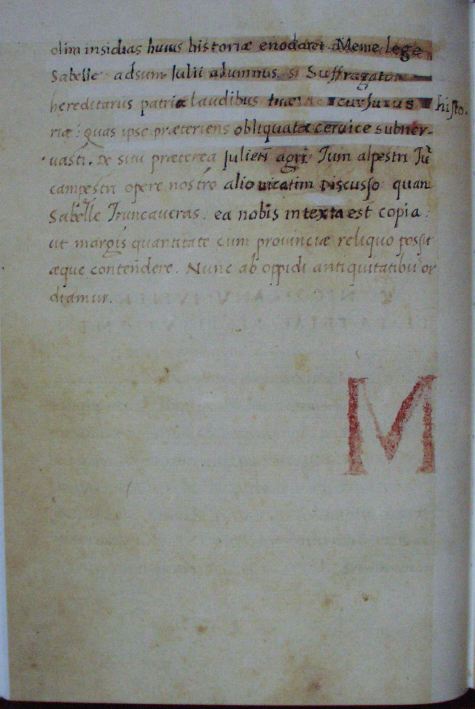 olim insidias huius historiæ enodaret. Meme lege
Sabelle adsum Julii alumnus, si Suffragator
hereditarius patriæ laudibus tuæ cursurus histo-
riæ: quas ipse præteriens obliquata cervice subner-
vasti. De situ præterea Julien agri Tum alpestri Tū
campestri opere nostro alio vicatim discusso quan
Sabelle Truncaveras. ea nobis intexta est copia:
ut margis quantitate cum provinciæ reliquo possit
æque contendere. Nunc ab oppidi antiquitatibus or
diamur.
M